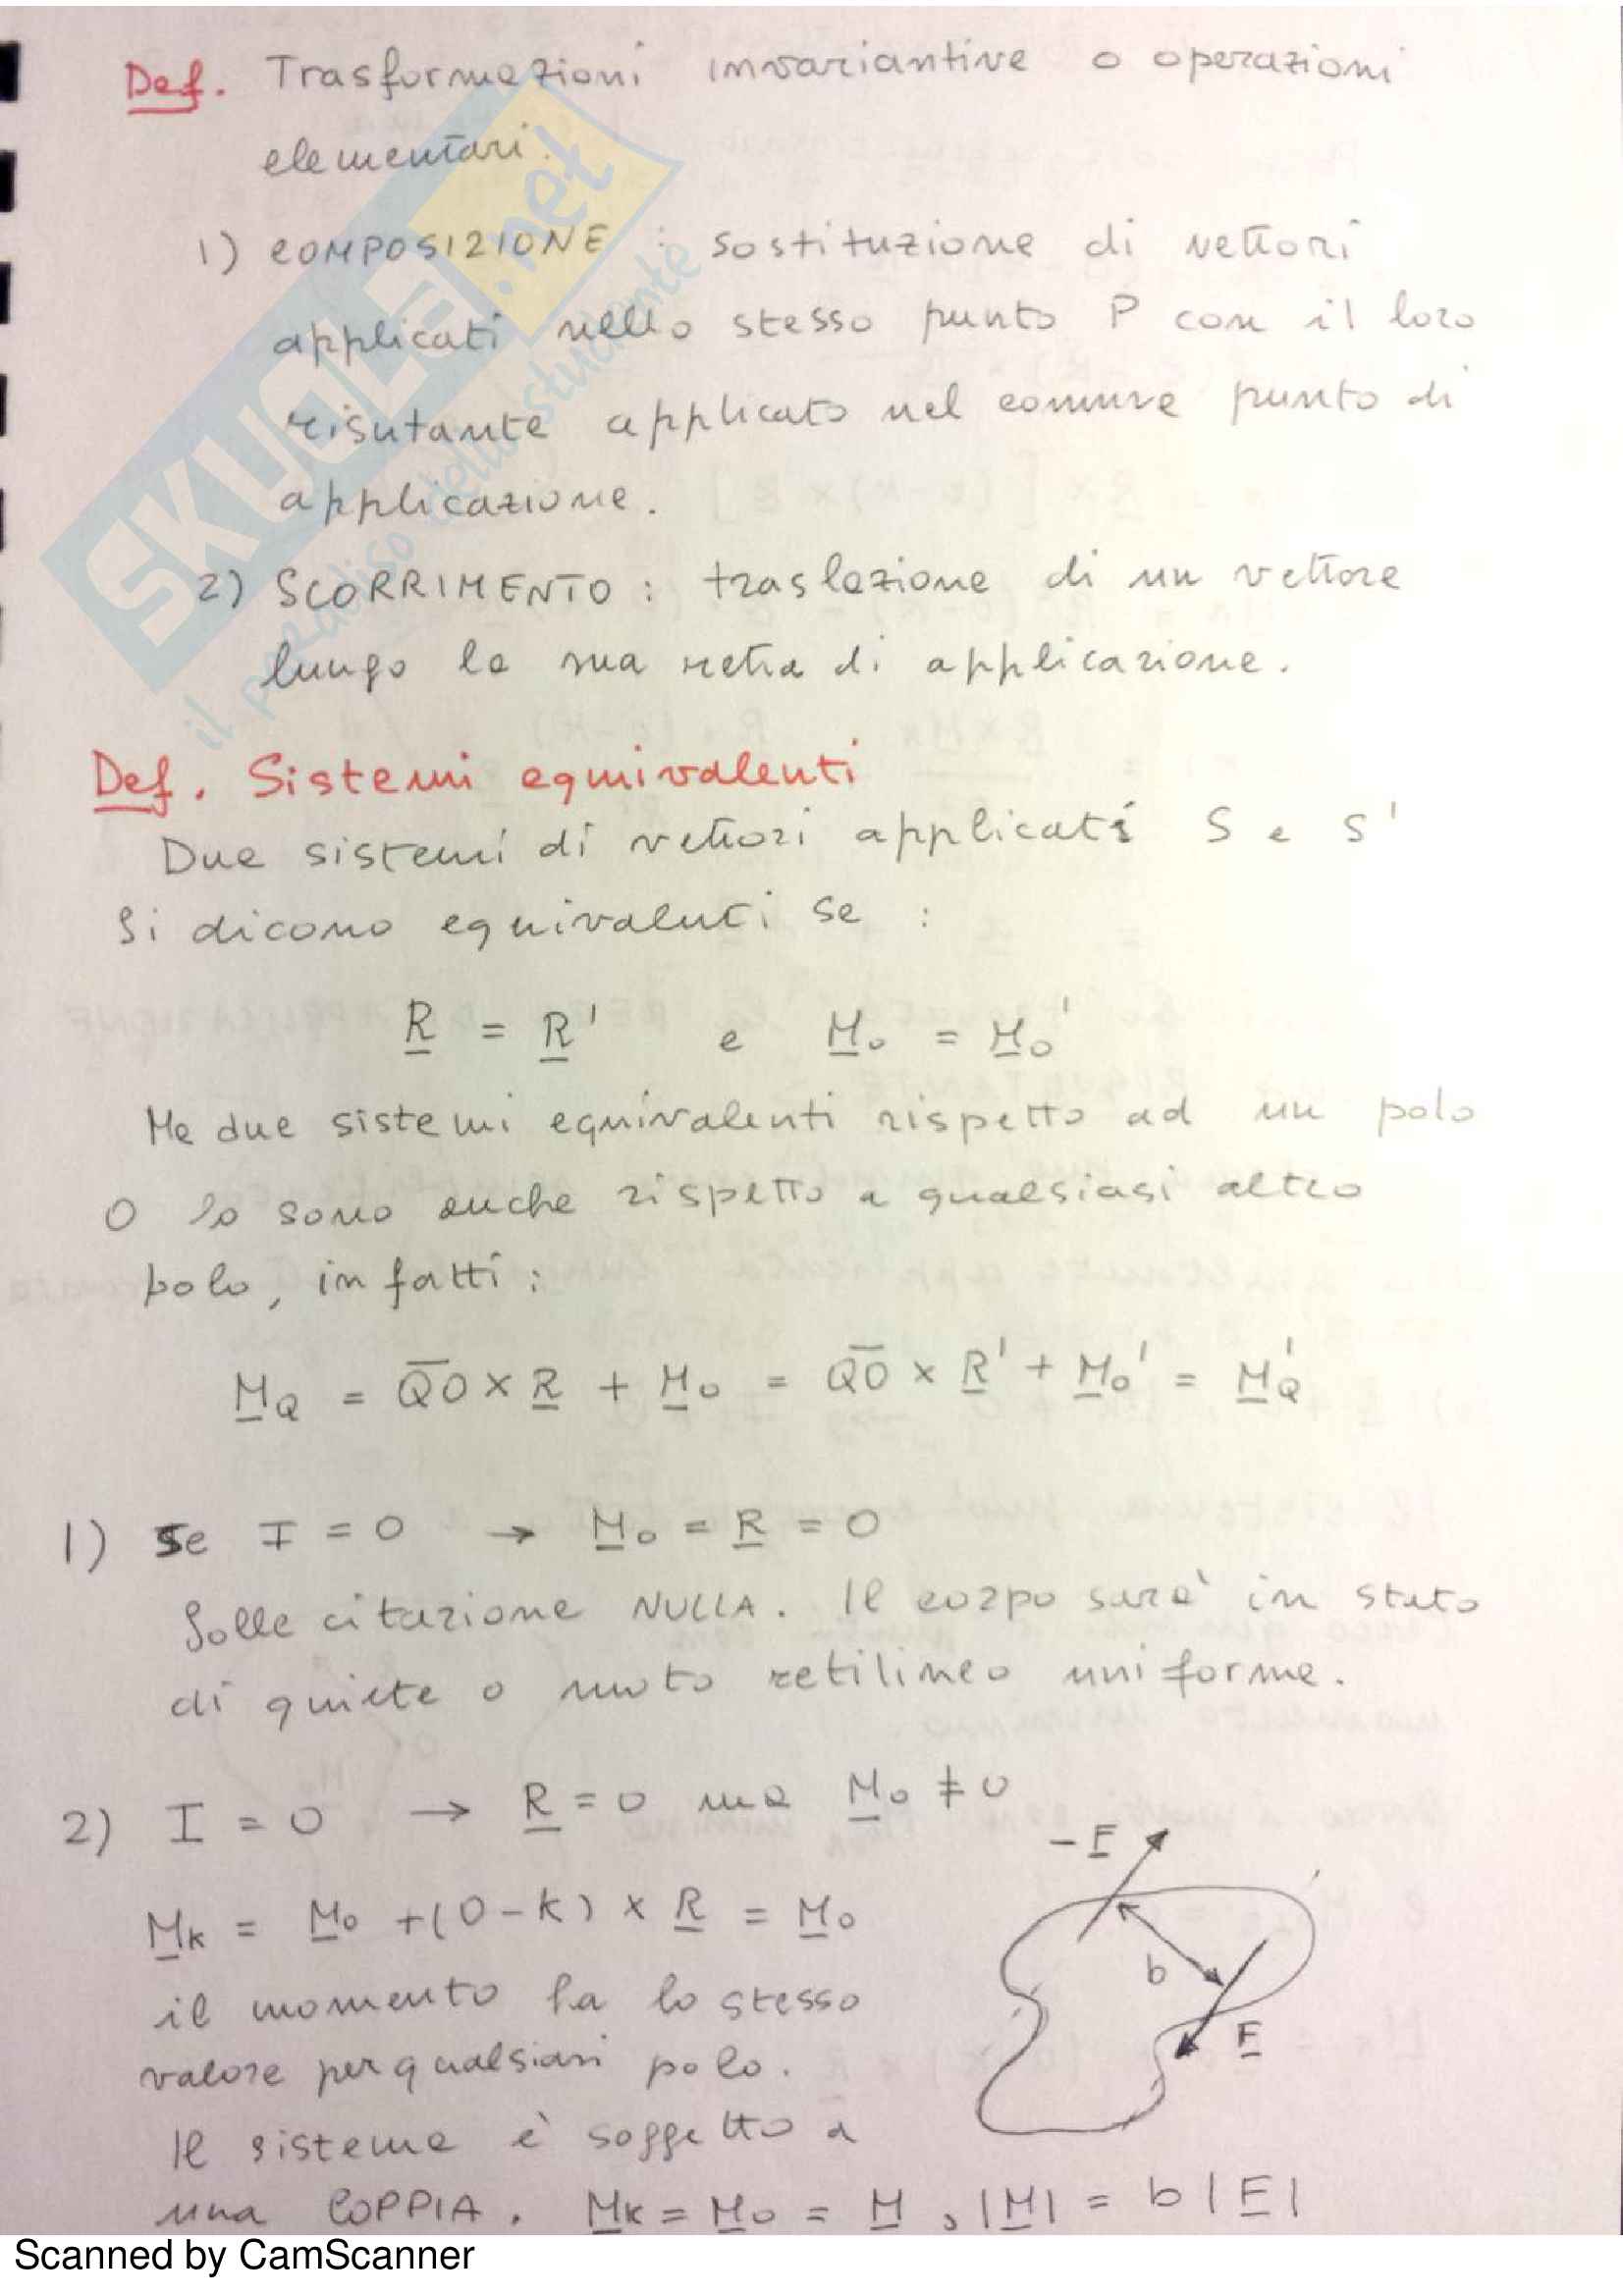 Def. Trasformazioni invariantive o operazioni
elementari.
1) COMPOSIZIONE : sostituzione di vettori
applicati nello stesso punto P con il loro
risutante applicato nel comune punto di
applicazione.
2) SCORRIMENTO : traslazione di un vettore
lungo la sua retta di applicazione.
Def. Sistemi equivalenti
Due sistemi di vettori applicati S e S'
Si dicono equivalenti se :
R = R' e Mo = Mo'
Ma due sistemi equivalenti rispetto ad un polo
O lo sono anche rispetto a qualsiasi altro
polo, infatti :
MQ = QO × R + Mo = QO × R' + Mo' = MQ'
1) Se I = 0 → Mo = R = 0
Sollecitazione NULLA. Il corpo sarà in stato
di quiete o moto retilineo uniforme.
2) I = 0 → R = 0 ma Mo ≠ 0
-F
Mk = Mo + (O-k) × R = Mo
b
il momento ha lo stesso
F
valore per qualsiasi polo.
Il sistema è soggetto a
una COPPIA. Mk = Mo = M , |M| = b|F|
SKUOLA.net
il paradiso dello studente
Scanned by CamScanner